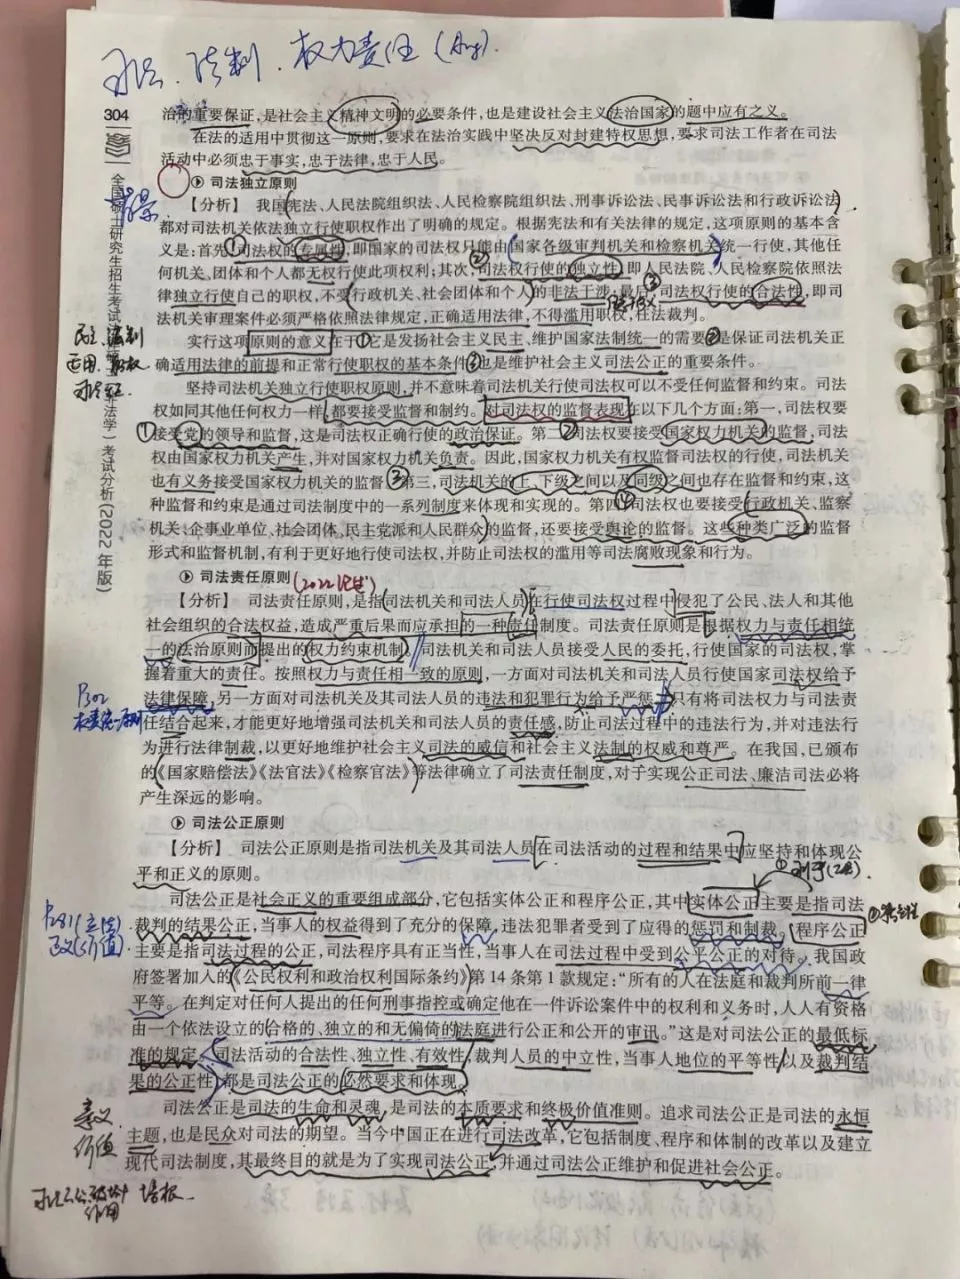 司法、法制、权力责任
304
治的重要保证，是社会主义精神文明的必要条件，也是建设社会主义法治国家的题中应有之义。
在法的适用中贯彻这一原则，要求在法治实践中坚决反对封建特权思想，要求司法工作者在司法
活动中必须忠于事实，忠于法律，忠于人民。
司法独立原则
背景
【分析】 我国宪法、人民法院组织法、人民检察院组织法、刑事诉讼法、民事诉讼法和行政诉讼法
都对司法机关依法独立行使职权作出了明确的规定。根据宪法和有关法律的规定，这项原则的基本含
义是：首先，①司法权的专属性，即国家的司法权只能由国家各级审判机关和检察机关统一行使，其他任
何机关、团体和个人都无权行使此项权利；其次，②司法权行使的独立性，即人民法院、人民检察院依照法
律独立行使自己的职权，不受行政机关、社会团体和个人的非法干涉；最后，③司法权行使的合法性，即司
法机关审理案件必须严格依照法律规定，正确适用法律，不得滥用职权，枉法裁判。
民主、法制
适用、职权
实行这项原则的意义在于①它是发扬社会主义民主、维护国家法制统一的需要②是保证司法机关正
确适用法律的前提和正常行使职权的基本条件③也是维护社会主义司法公正的重要条件。
坚持司法机关独立行使职权原则，并不意味着司法机关行使司法权可以不受任何监督和约束。司法
权如同其他任何权力一样，都要接受监督和制约。对司法权的监督表现在以下几个方面：第一，司法权要
①接受党的领导和监督，这是司法权正确行使的政治保证。第二②司法权要接受国家权力机关的监督，司法
权由国家权力机关产生，并对国家权力机关负责。因此，国家权力机关有权监督司法权的行使，司法机关
也有义务接受国家权力机关的监督③第三，司法机关的上、下级之间以及同级之间也存在监督和约束，这
种监督和约束是通过司法制度中的一系列制度来体现和实现的。第四④司法权也要接受行政机关、监察
机关、企事业单位、社会团体、民主党派和人民群众的监督，还要接受舆论的监督。这些种类广泛的监督
形式和监督机制，有利于更好地行使司法权，并防止司法权的滥用等司法腐败现象和行为。
全国硕士研究生招生考试
法学）考试分析（2022年版）
司法责任原则
【分析】 司法责任原则，是指司法机关和司法人员在行使司法权过程中侵犯了公民、法人和其他
社会组织的合法权益，造成严重后果而应承担的一种责任制度。司法责任原则是根据权力与责任相统
一的法治原则而提出的权力约束机制。司法机关和司法人员接受人民的委托，行使国家的司法权，掌
握着重大的责任。按照权力与责任相一致的原则，一方面对司法机关和司法人员行使国家司法权给予
P302
法律保障，另一方面对司法机关及其司法人员的违法和犯罪行为给予严惩。只有将司法权力与司法责
任结合起来，才能更好地增强司法机关和司法人员的责任感，防止司法过程中的违法行为，并对违法行
为进行法律制裁，以更好地维护社会主义司法的威信和社会主义法制的权威和尊严。在我国，已颁布
的《国家赔偿法》《法官法》《检察官法》等法律确立了司法责任制度，对于实现公正司法、廉洁司法必将
产生深远的影响。
司法公正原则
【分析】 司法公正原则是指司法机关及其司法人员在司法活动的过程和结果中应坚持和体现公
平和正义的原则。
司法公正是社会正义的重要组成部分，它包括实体公正和程序公正，其中实体公正主要是指司法
裁判的结果公正，当事人的权益得到了充分的保障，违法犯罪者受到了应得的惩罚和制裁。程序公正
主要是指司法过程的公正，司法程序具有正当性，当事人在司法过程中受到公平公正的对待。我国政
府签署加入的《公民权利和政治权利国际条约》第14条第1款规定：“所有的人在法庭和裁判所前一律
平等。在判定对任何人提出的任何刑事指控或确定他在一件诉讼案件中的权利和义务时，人人有资格
由一个依法设立的合格的、独立的和无偏倚的法庭进行公正和公开的审讯。”这是对司法公正的最低标
准的规定。司法活动的合法性、独立性、有效性，裁判人员的中立性，当事人地位的平等性，以及裁判结
果的公正性，都是司法公正的必然要求和体现。
意义
价值
司法公正是司法的生命和灵魂，是司法的本质要求和终极价值准则。追求司法公正是司法的永恒
主题，也是民众对司法的期望。当今中国正在进行司法改革，它包括制度、程序和体制的改革以及建立
现代司法制度，其最终目的就是为了实现司法公正，并通过司法公正维护和促进社会公正。